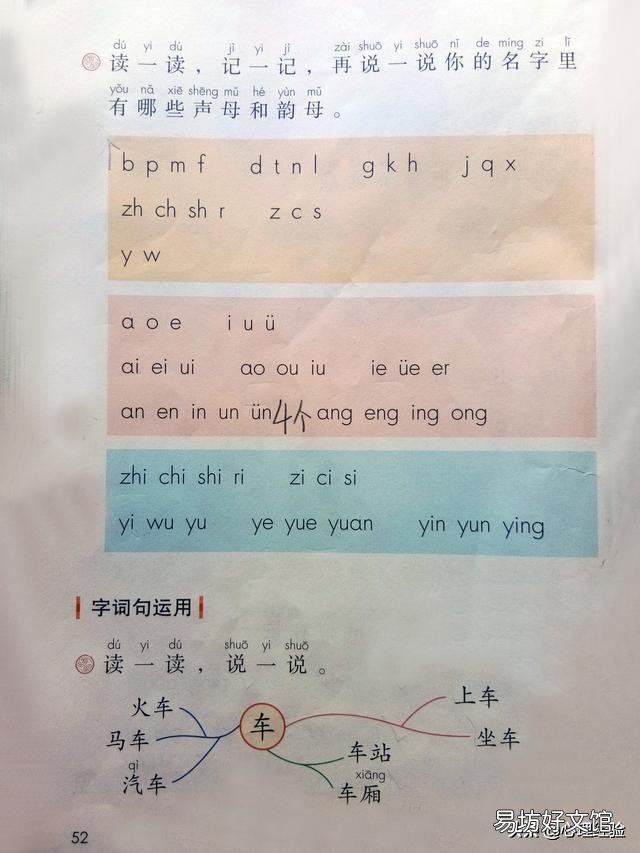 dú yi dú jì yi jì zài shuō yi shuō nǐ de míng zi lǐ
读一读，记一记，再说一说你的名字里
yǒu nǎ xiē shēng mǔ hé yùn mǔ
有哪些声母和韵母。
b p m f d t n l g k h j q x
zh ch sh r z c s
y w
a o e i u ü
ai ei ui ao ou iu ie üe er
an en in un ün 4个 ang eng ing ong
zhi chi shi ri zi ci si
yi wu yu ye yue yuan yin yun ying
字词句运用
dú yi dú shuō yi shuō
读一读，说一说。
火车
马车
qì
汽车
车
上车
坐车
车站
xiāng
车厢
52
易坊好文馆